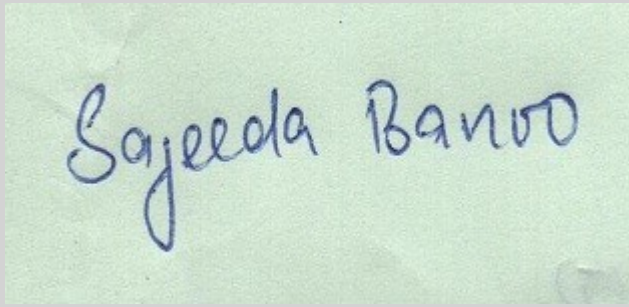 Sajeeda Banoo